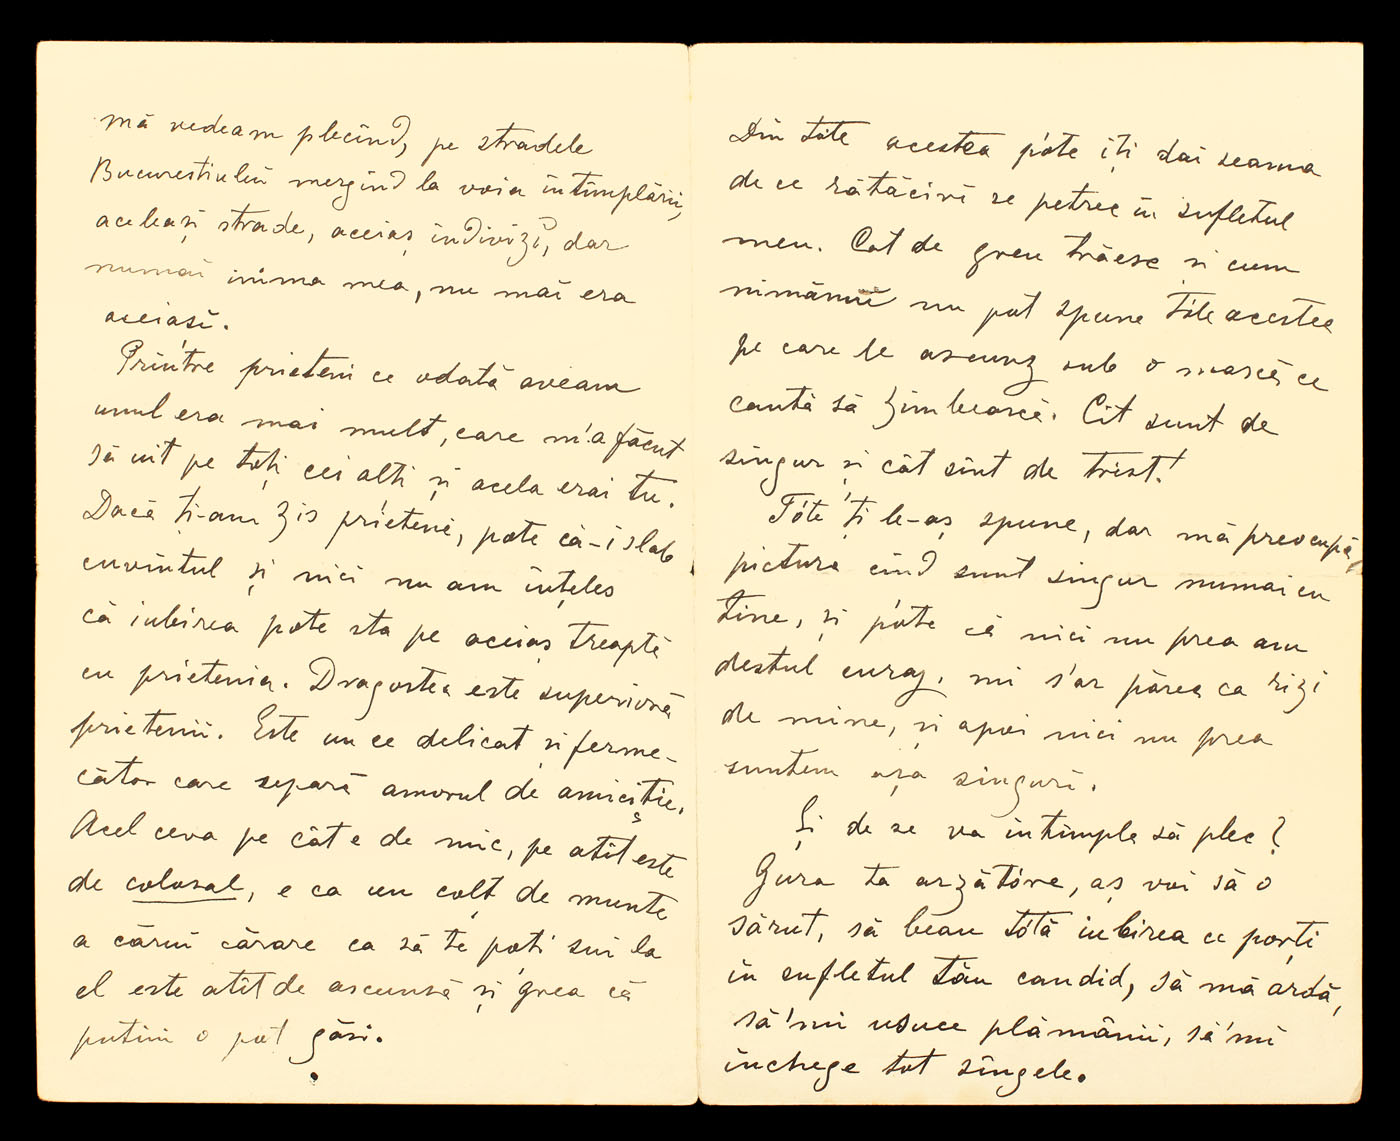 mă vedeam plecînd, pe stradele
Bucurestiului mergînd la voia întîmplării,
aceleași strade, aceiaș indivizĭ, dar
numaĭ inima mea, nu maĭ era
aceiasĭ.
Printre prieteni ce odată aveam
unul era mai mult, care m'a făcut
să uit pe toți cei alti și acela erai tu.
Dacă ți-am zis prietene, pote că-i slab
cuvîntul și nici nu am înțeles
că iubirea pote sta pe aceiaș treaptă
cu prietenia. Dragostea este superioră
prieteniĭ. Este un ce delicat și ferme-
cător care separă amorul de amiciție.
Acel ceva pe cât e de mic, pe atît este
de colosal, e ca un colț de munte
a căruĭ cărare ca să te poți sui la
el este atît de ascunsă și grea că
putini o pot găsi.
Din tóte acestea póte îți daĭ seama
de ce rătăcirĭ se petrec în sufletul
meu. Cat de greu trăesc si cum
nimănuĭ nu pot spune tóte acestea
pe care le ascunz sub o mască ce
caută să zimbească. Cît sunt de
singur și cât sînt de trist!
Tóte ți le-aș spune, dar mă preocupă
pictura cînd sunt singur numai cu
tine, și póte că nici nu prea am
destul curaj. mi s'ar părea ca rîzi
de mine, si apoi nici nu prea
suntem așa singurĭ.
Și de se va întimpla să plec?
Gura ta arzătóre, aș voi să o
sărut, să beau tótă iubirea ce porți
în sufletul tău candid, să mă ardă,
să'mi usuce plămâniĭ, să'mĭ
închege tot sîngele.